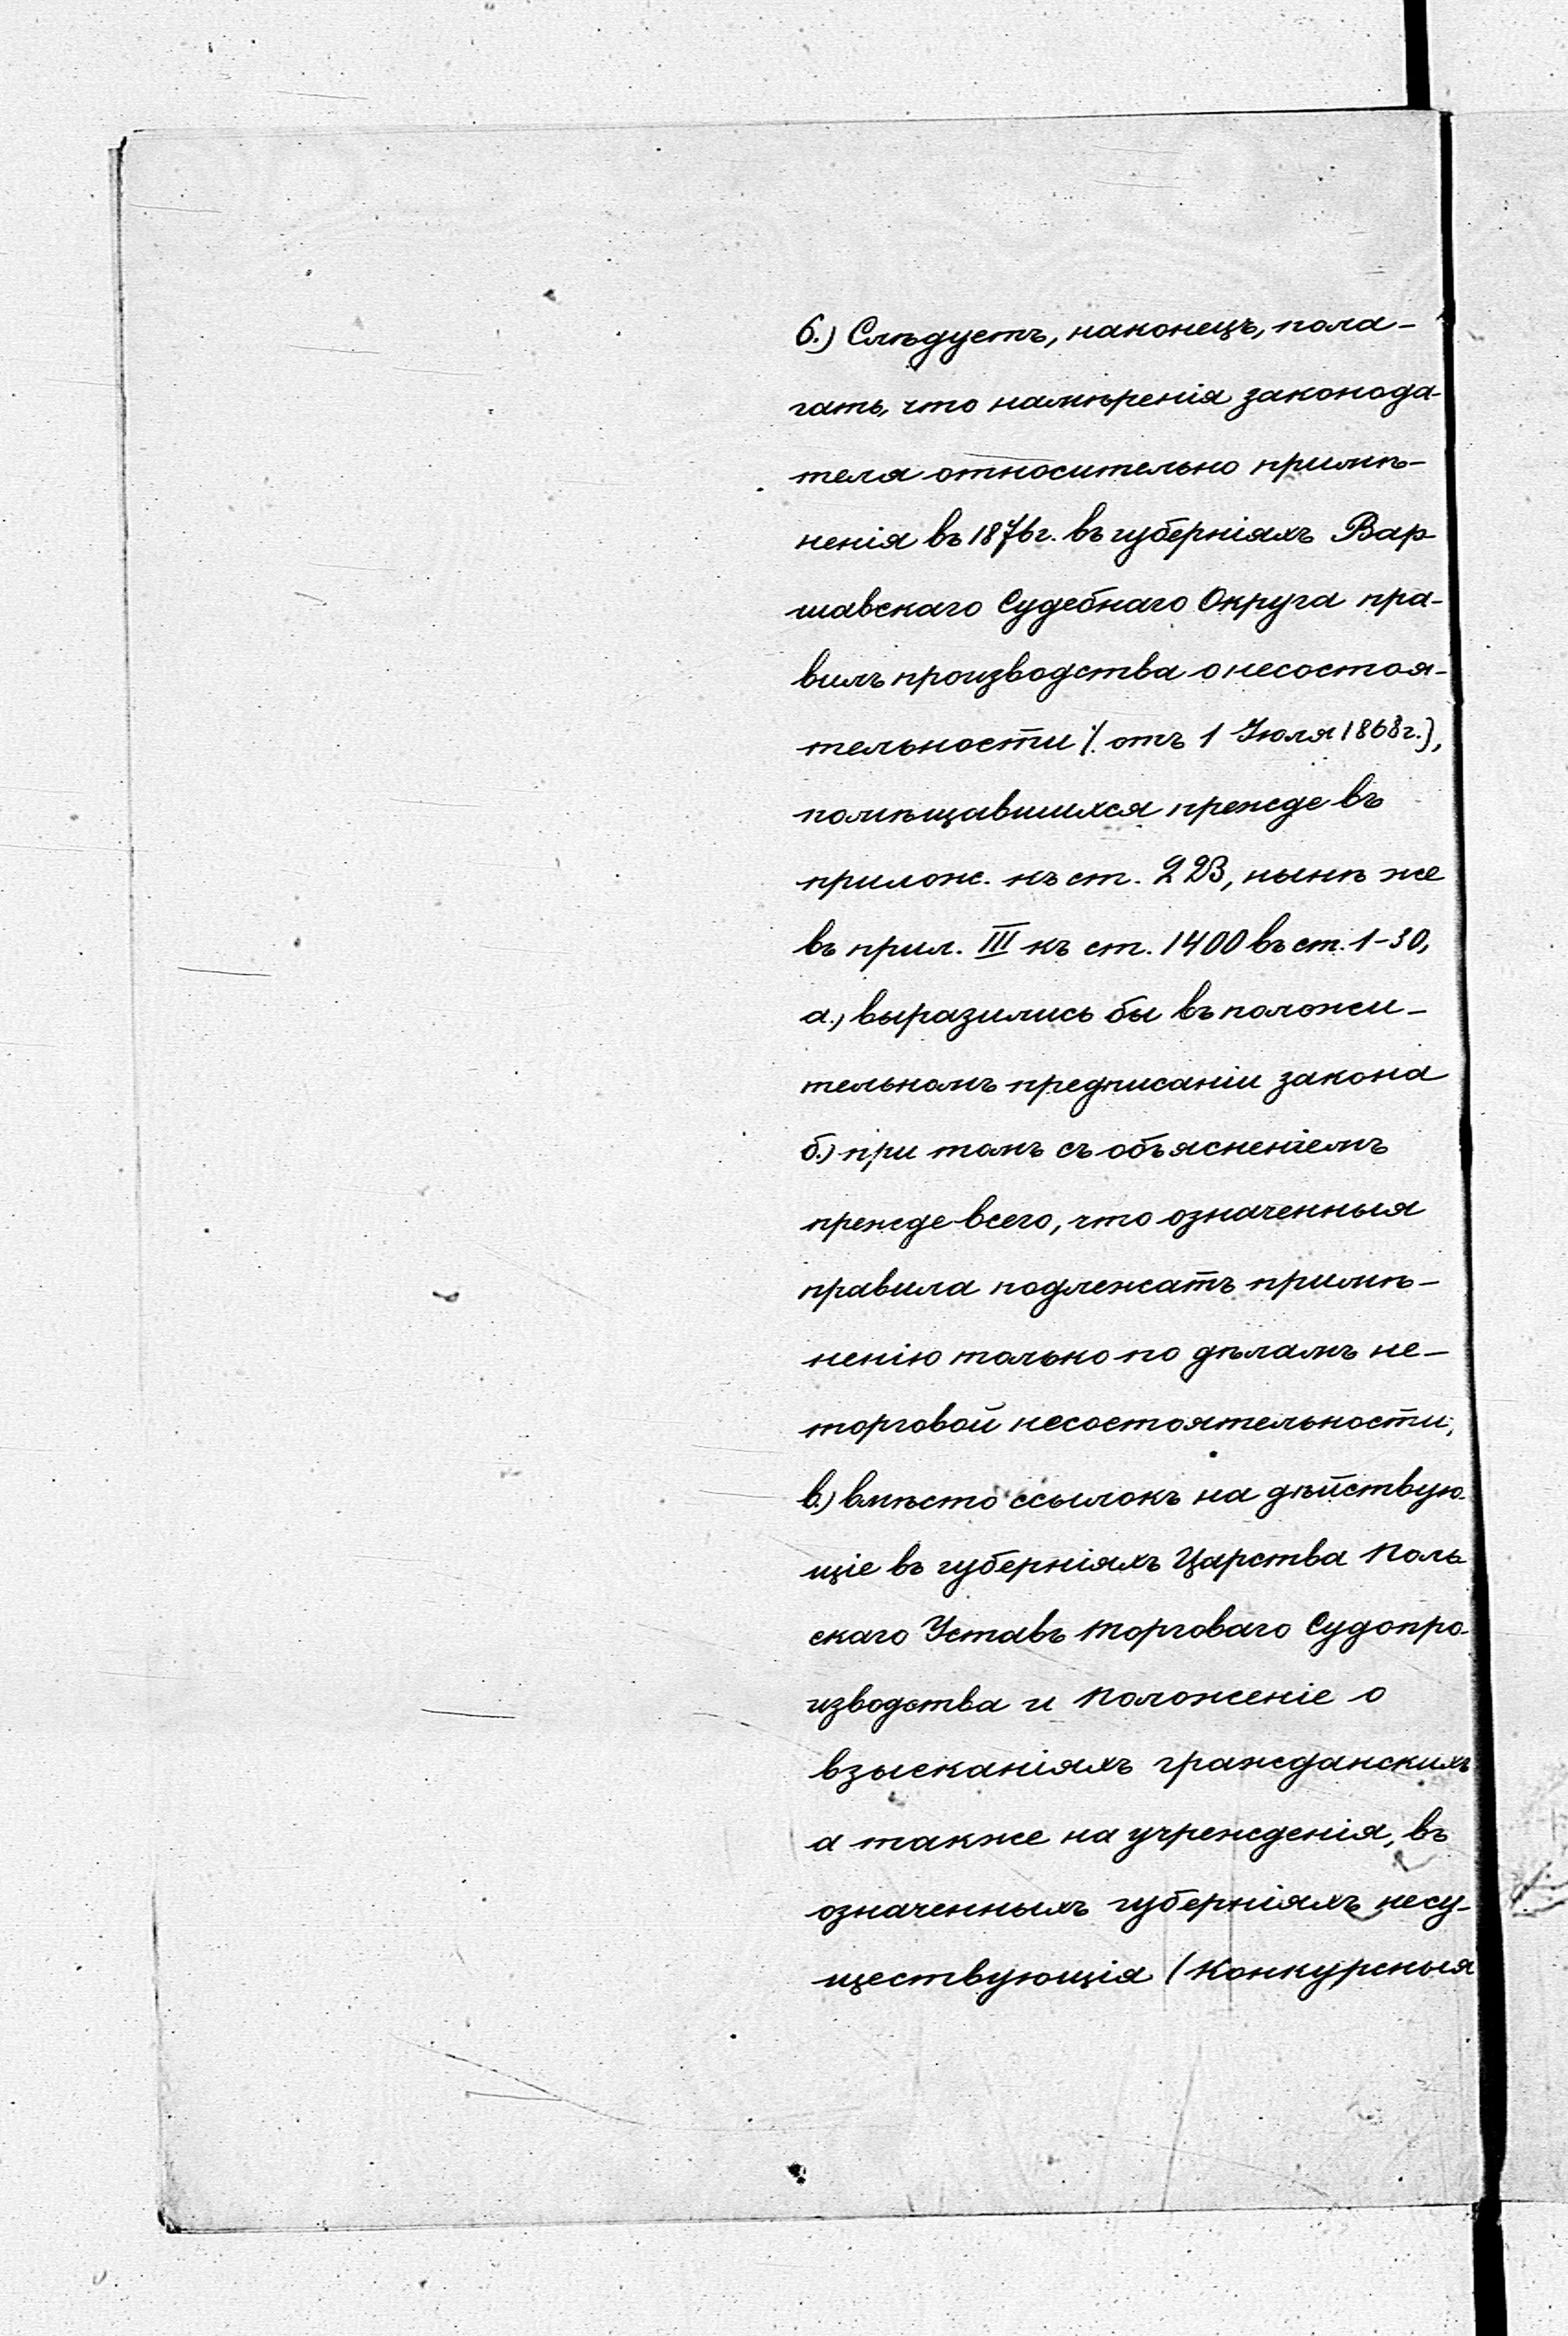 6.) Слѣдуетъ, наконецъ, пола-
гать, что намѣренія законода-
теля относительно примѣ-
ненія въ 1876 г. въ губерніяхъ Вар
шавскаго Судебнаго Округа пра-
вилъ производства о несостоя-
тельности /. отъ 1 Июля 1868 г.),
помѣщавшихся прежде въ
прилож. къ ст. 223, нынѣ же
въ прил. III къ ст. 1400 въ ст. 1-30,
а.) выразились бы въ положи-
тельномъ предписаніи закона
б.) при томъ съ объясненіемъ
прежде всего, что означенныя
правила подлежатъ примѣ-
ненію только по дѣламъ не-
торговой несостоятельности;
в.) вмѣсто ссылокъ на дѣйствую-
щіе въ губерніяхъ Царства Поль
скаго Уставъ Торговаго Судопро-
изводства и Положеніе о
взысканіяхъ гражданскихъ
а также на учрежденія, въ
означенныхъ губерніяхъ несу-
ществующія (Конкурсныя